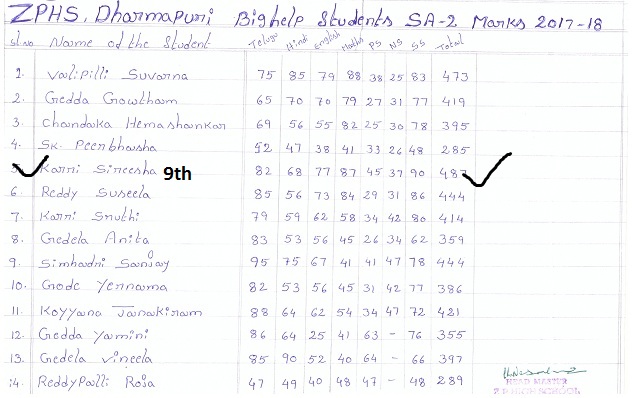 ZPHS. Dharmapuri Bighelp Students SA-2 Marks 2017-18
Sl.no Name of the Student Telugu Hindi English Maths PS NS SS Total
1. Valipilli Suvarna 75 85 79 88 38 25 83 473
2. Gedda Gowtham 65 70 70 79 27 31 77 419
3. Chandaka Hemashankar 69 56 55 82 25 30 78 395
4. SK. Peenbhasha 52 47 38 41 33 26 48 285
5. Karri Sireesha 9th 82 68 77 87 45 37 90 487
6. Reddy Suseela 85 56 73 84 29 31 86 444
7. Karri Sruthi 79 59 62 58 34 42 80 414
8. Gedela Anita 83 53 56 45 26 34 62 359
9. Simhadri Sanjay 95 75 67 41 41 47 78 444
10. Gode Yerrama 82 53 56 45 31 42 77 386
11. Koyyana Janakiram 88 64 62 54 34 47 72 421
12. Gedda Yamini 86 64 25 41 63 - 76 355
13. Gedela Vineela 85 90 52 40 64 - 66 397
14. ReddyPalli Roja 47 49 40 48 47 - 48 289
HEAD MASTER
Z.P.HIGH SCHOOL